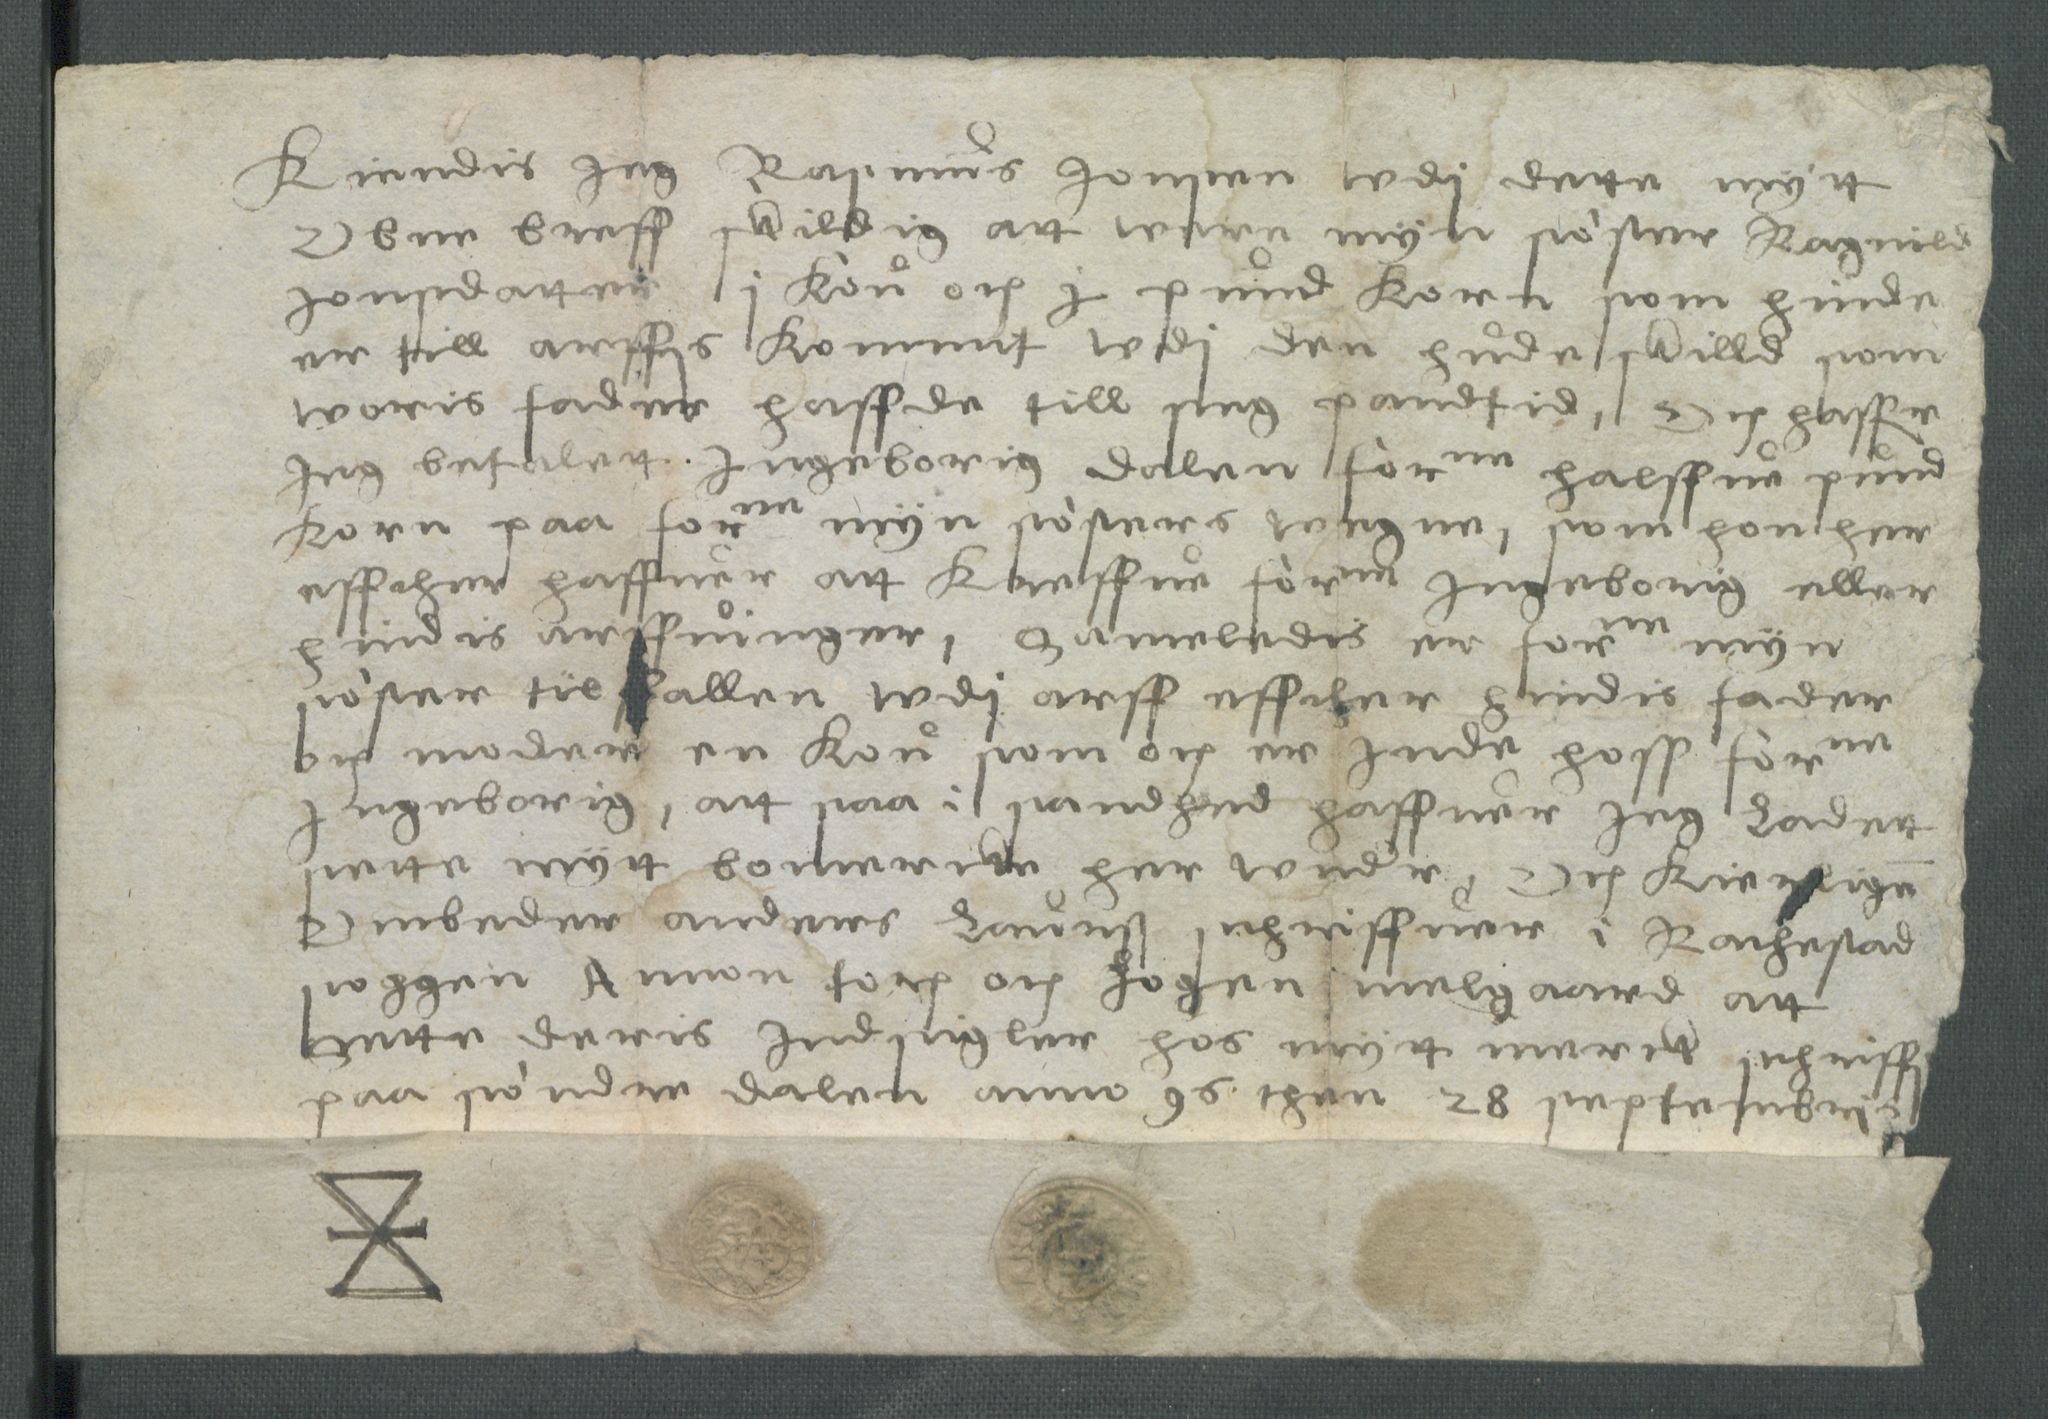 Kiendis Jeg Rasmus Jonsen wdj dette mÿtt
Obne breff skildig att were mÿn søster Ragnild
Jonsdatter j kou och j pund korn som hinde
er till arffs kommit wdj den hude skilld som
woris fader haffde till seg pandtid, Och haffr
Jeg betalett Ingeborig dalen forne halffue pund
korn paa forne mÿn søsters wegne, som hon her
effther haffuer att kreffue forne Ingeborig eller
hindis arffuinger, Sameledis er forne mÿn
søster tilfallen wdj arff effther hindis fader
och moder en kou som och er Inde hoss forne
Ingeborig, att saa i sandhed haffuer Jeg Ladett
sette mÿtt bomercke her wnder, Och kierligen
Ombeder anders Lauriss schriffuer i Rachestad
soggen Amon torp och Jogen melgaard att
sette deris Indsigler hos mÿtt merck schriff
paa søndre dalen anno 96 then 28 septembris